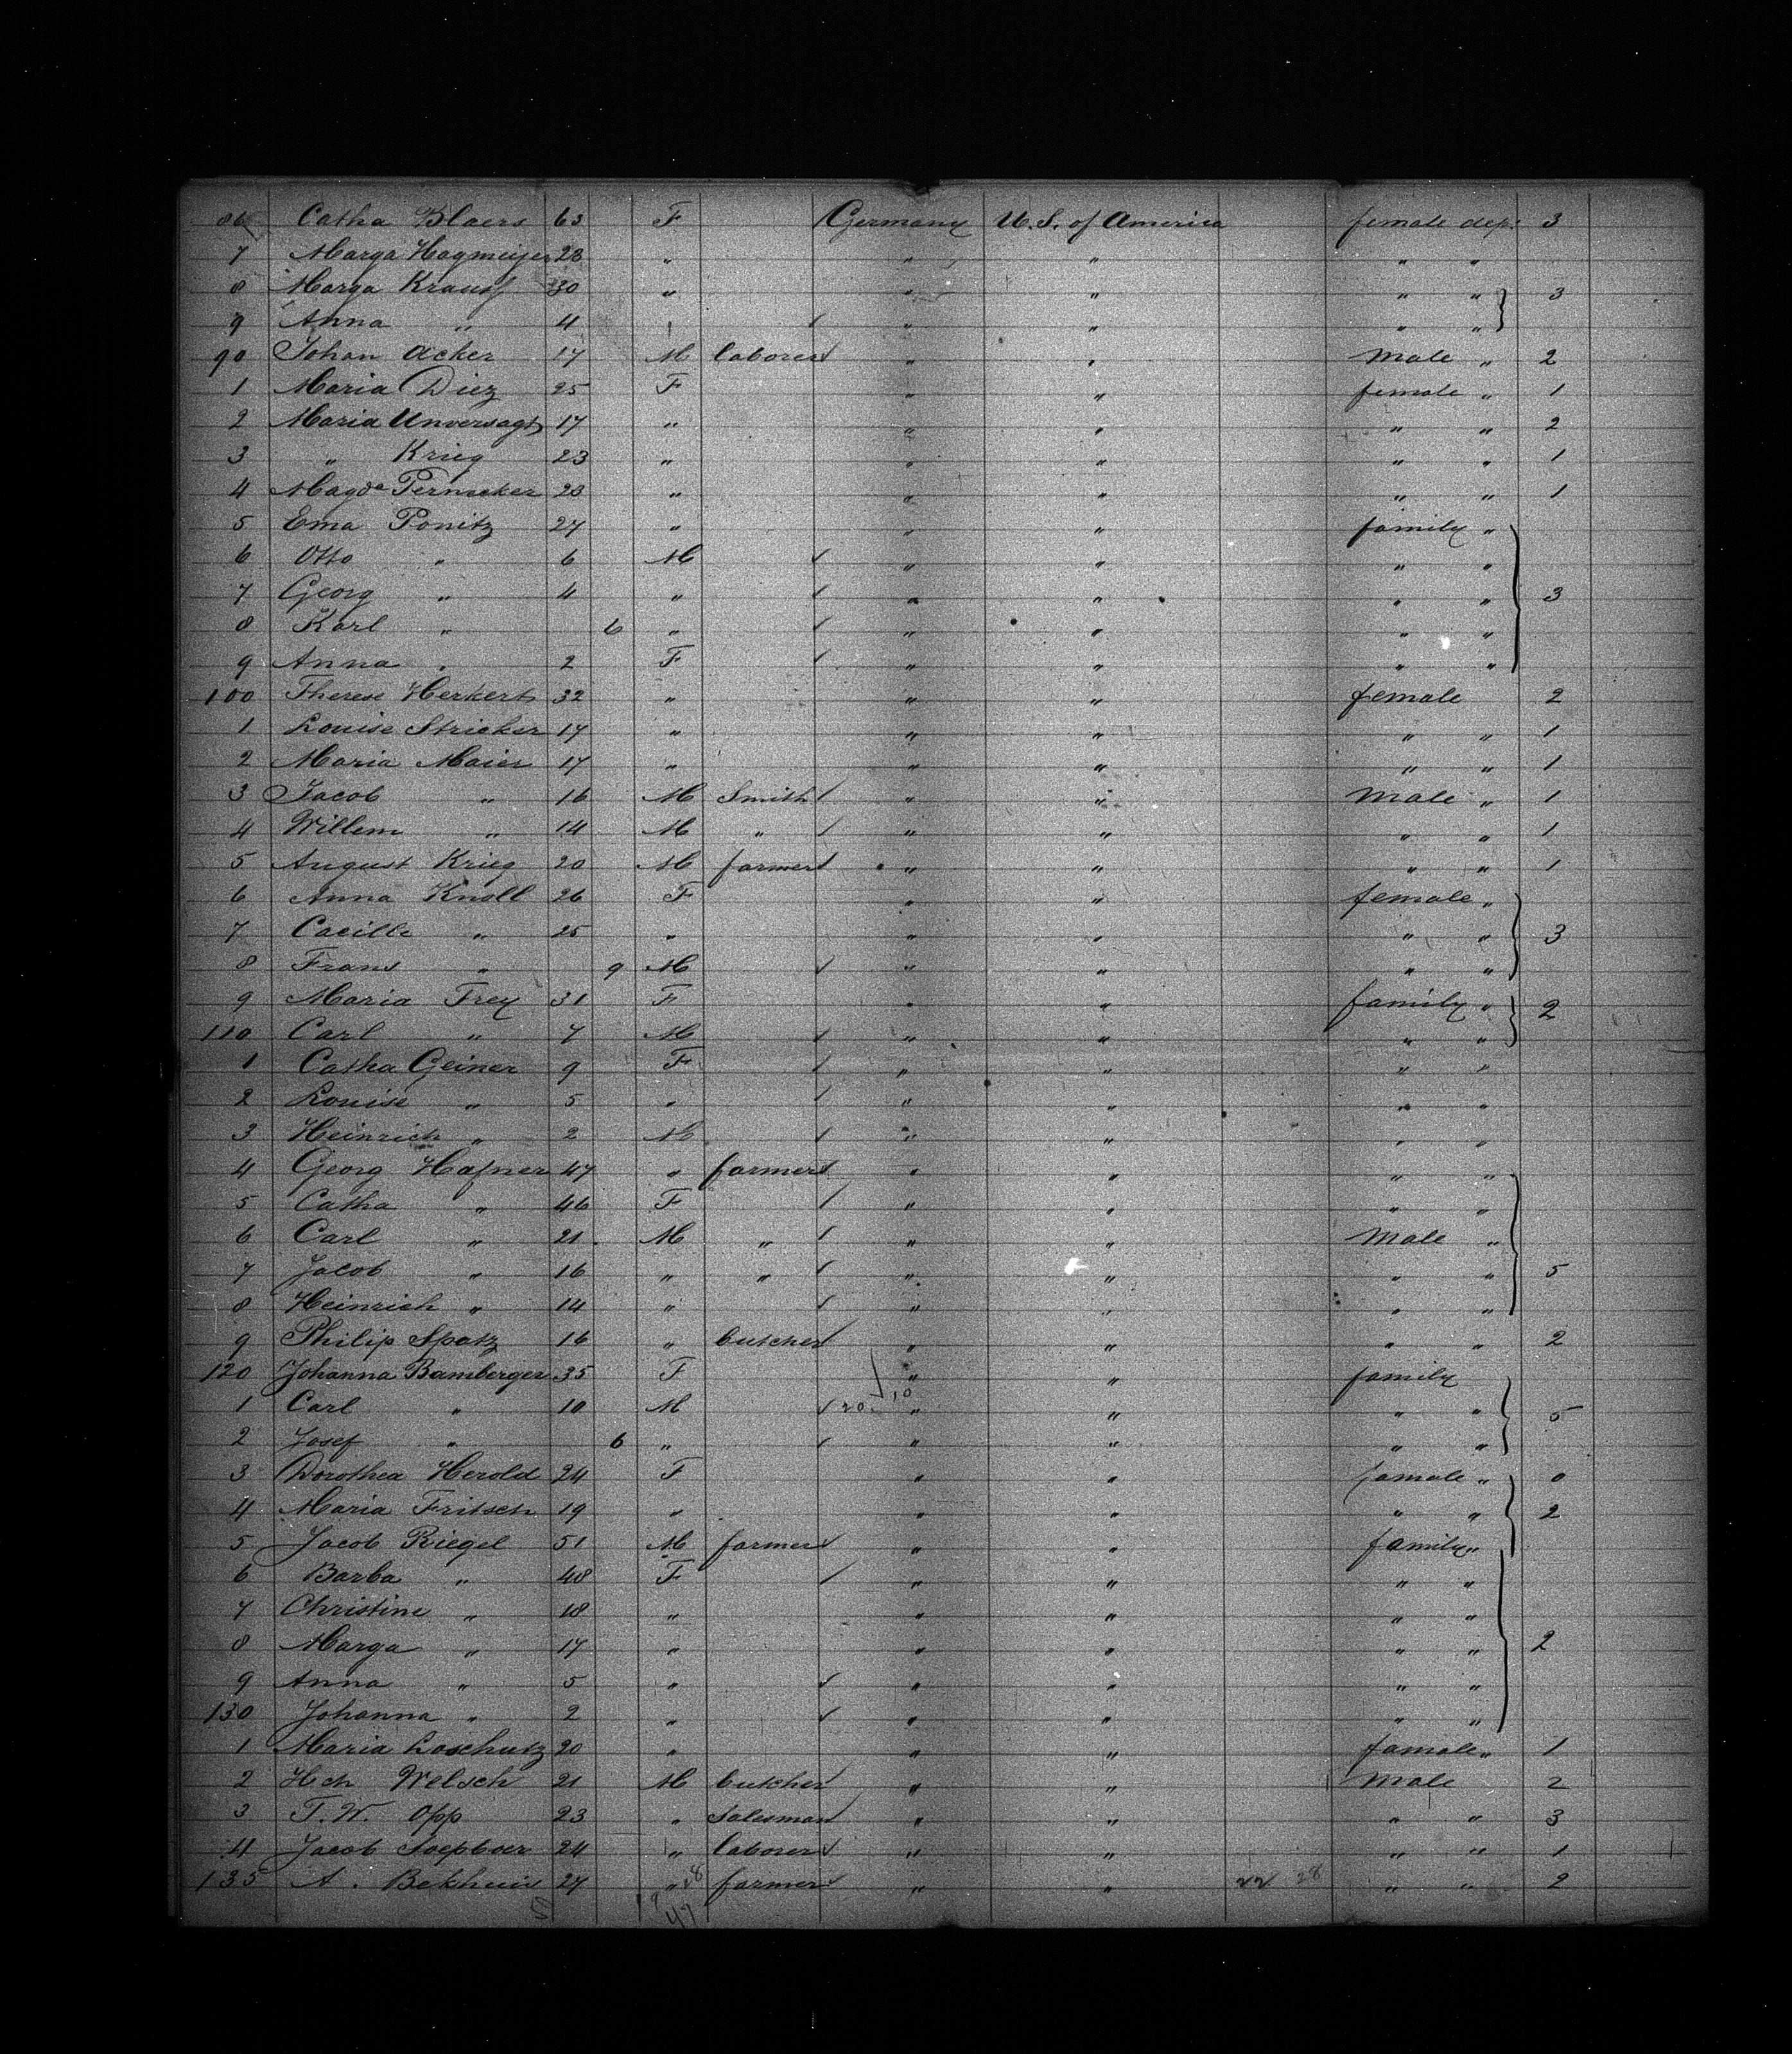 86 Catha Blaers 63 F Germany U.S. of America female dep. 3
7 Marga Hagmeijer 28 " " " " "
8 Marga Krauss 30 " " " " " 3
9 Anna " 4 " " " "
90 Johan Acker 17 M laborer " " Male " 2
1 Maria Diez 25 F " " female " 1
2 Maria Unversagt 17 " " " " " 2
3 " Krieg 23 " " " " " 1
4 Magda Pernecker 28 " " " " " 1
5 Ema Ponitz 27 " " " family "
6 Otto " 6 M " " " "
7 Georg " 4 " " " " " 3
8 Karl " 6 " " " " "
9 Anna " 2 F " " " "
100 Therese Herkert 32 " " " female 2
1 Louise Stricker 17 " " " " " 1
2 Maria Maier 17 " " " " " 1
3 Jacob " 16 M Smith " " Male " 1
4 Willem " 14 M " " " " " 1
5 August Krieg 20 M farmer " " " " 1
6 Anna Knoll 26 F " " female "
7 Cacilie " 25 " " " " " 3
8 Frans " 9 M " " " "
9 Maria Frey 31 F " " family " 2
110 Carl " 7 M " " " "
1 Catha Geiner 9 F " " " "
2 Louise " 5 " " " " "
3 Heinrich " 2 M " " " "
4 Georg Hafner 47 " farmer " " " "
5 Catha " 46 F " " " "
6 Carl " 21 M " " " Male "
7 Jacob " 16 " " " " " " 5
8 Heinrich " 14 " " " " "
9 Philip Spatz 16 " butcher " " " " 2
120 Johanna Bamberger 35 F " " family
1 Carl " 10 M 20 10 " " " " 5
2 Josef " 6 " " " " "
3 Dorothea Herold 24 F " " female " 0
4 Maria Fritsch 19 " " " " " 2
5 Jacob Riegel 51 M farmer " " family "
6 Barba " 48 F " " " "
7 Christine " 18 " " " " "
8 Marga " 17 " " " " " 2
9 Anna " 5 " " " " "
130 Johanna " 2 " " " " "
1 Maria Loschutz 20 " " " female " 1
2 Hch Welsch 21 M butcher " " Male 2
3 T. W. Opp 23 " Salesman " " " " 3
4 Jacob Soepboer 24 " laborer " " " " 1
135 A. Bekhuis 27 " 18 farmer " " 22 28 " " 2
19 47